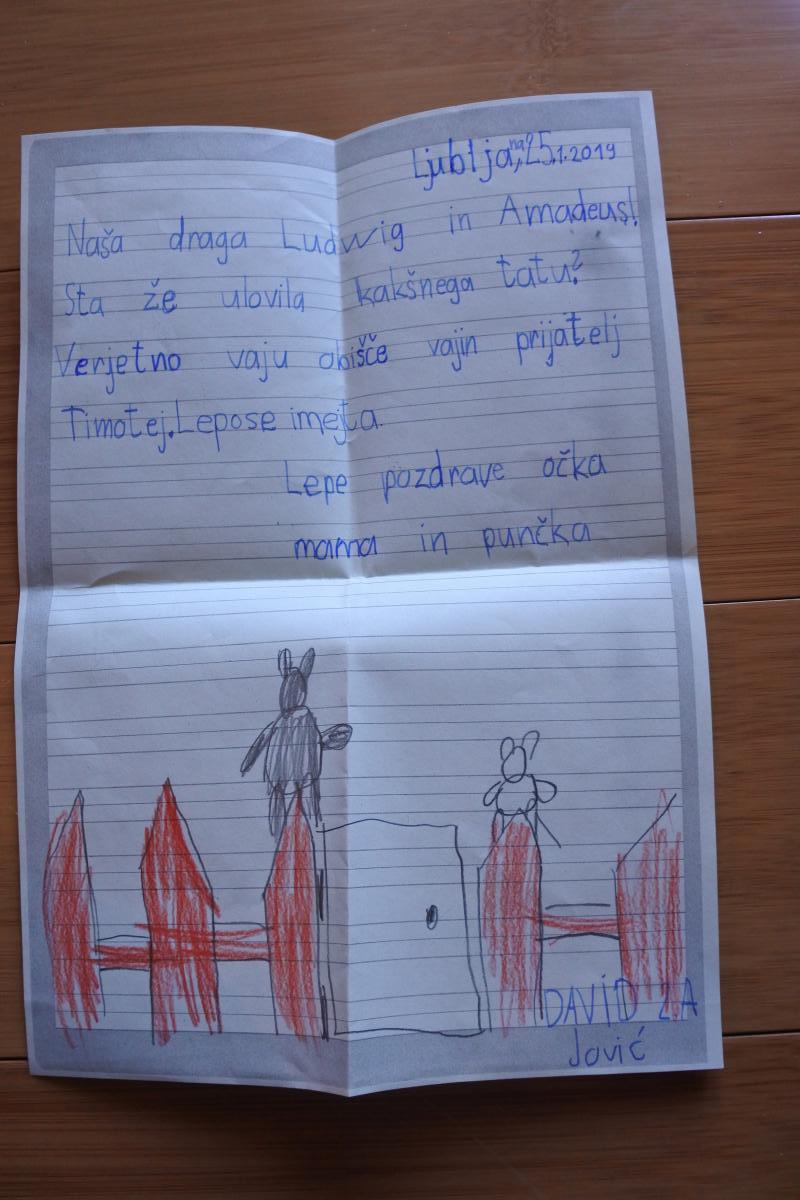 Ljubljana, 25.1.2019
Naša draga Ludwig in Amadeus!
Sta že ulovila kakšnega tatu?
Verjetno vaju obišče vajin prijatelj
Timotej. Lepose imejta.
Lepe pozdrave očka
mama in punčka
DAVID 2.A
Jović